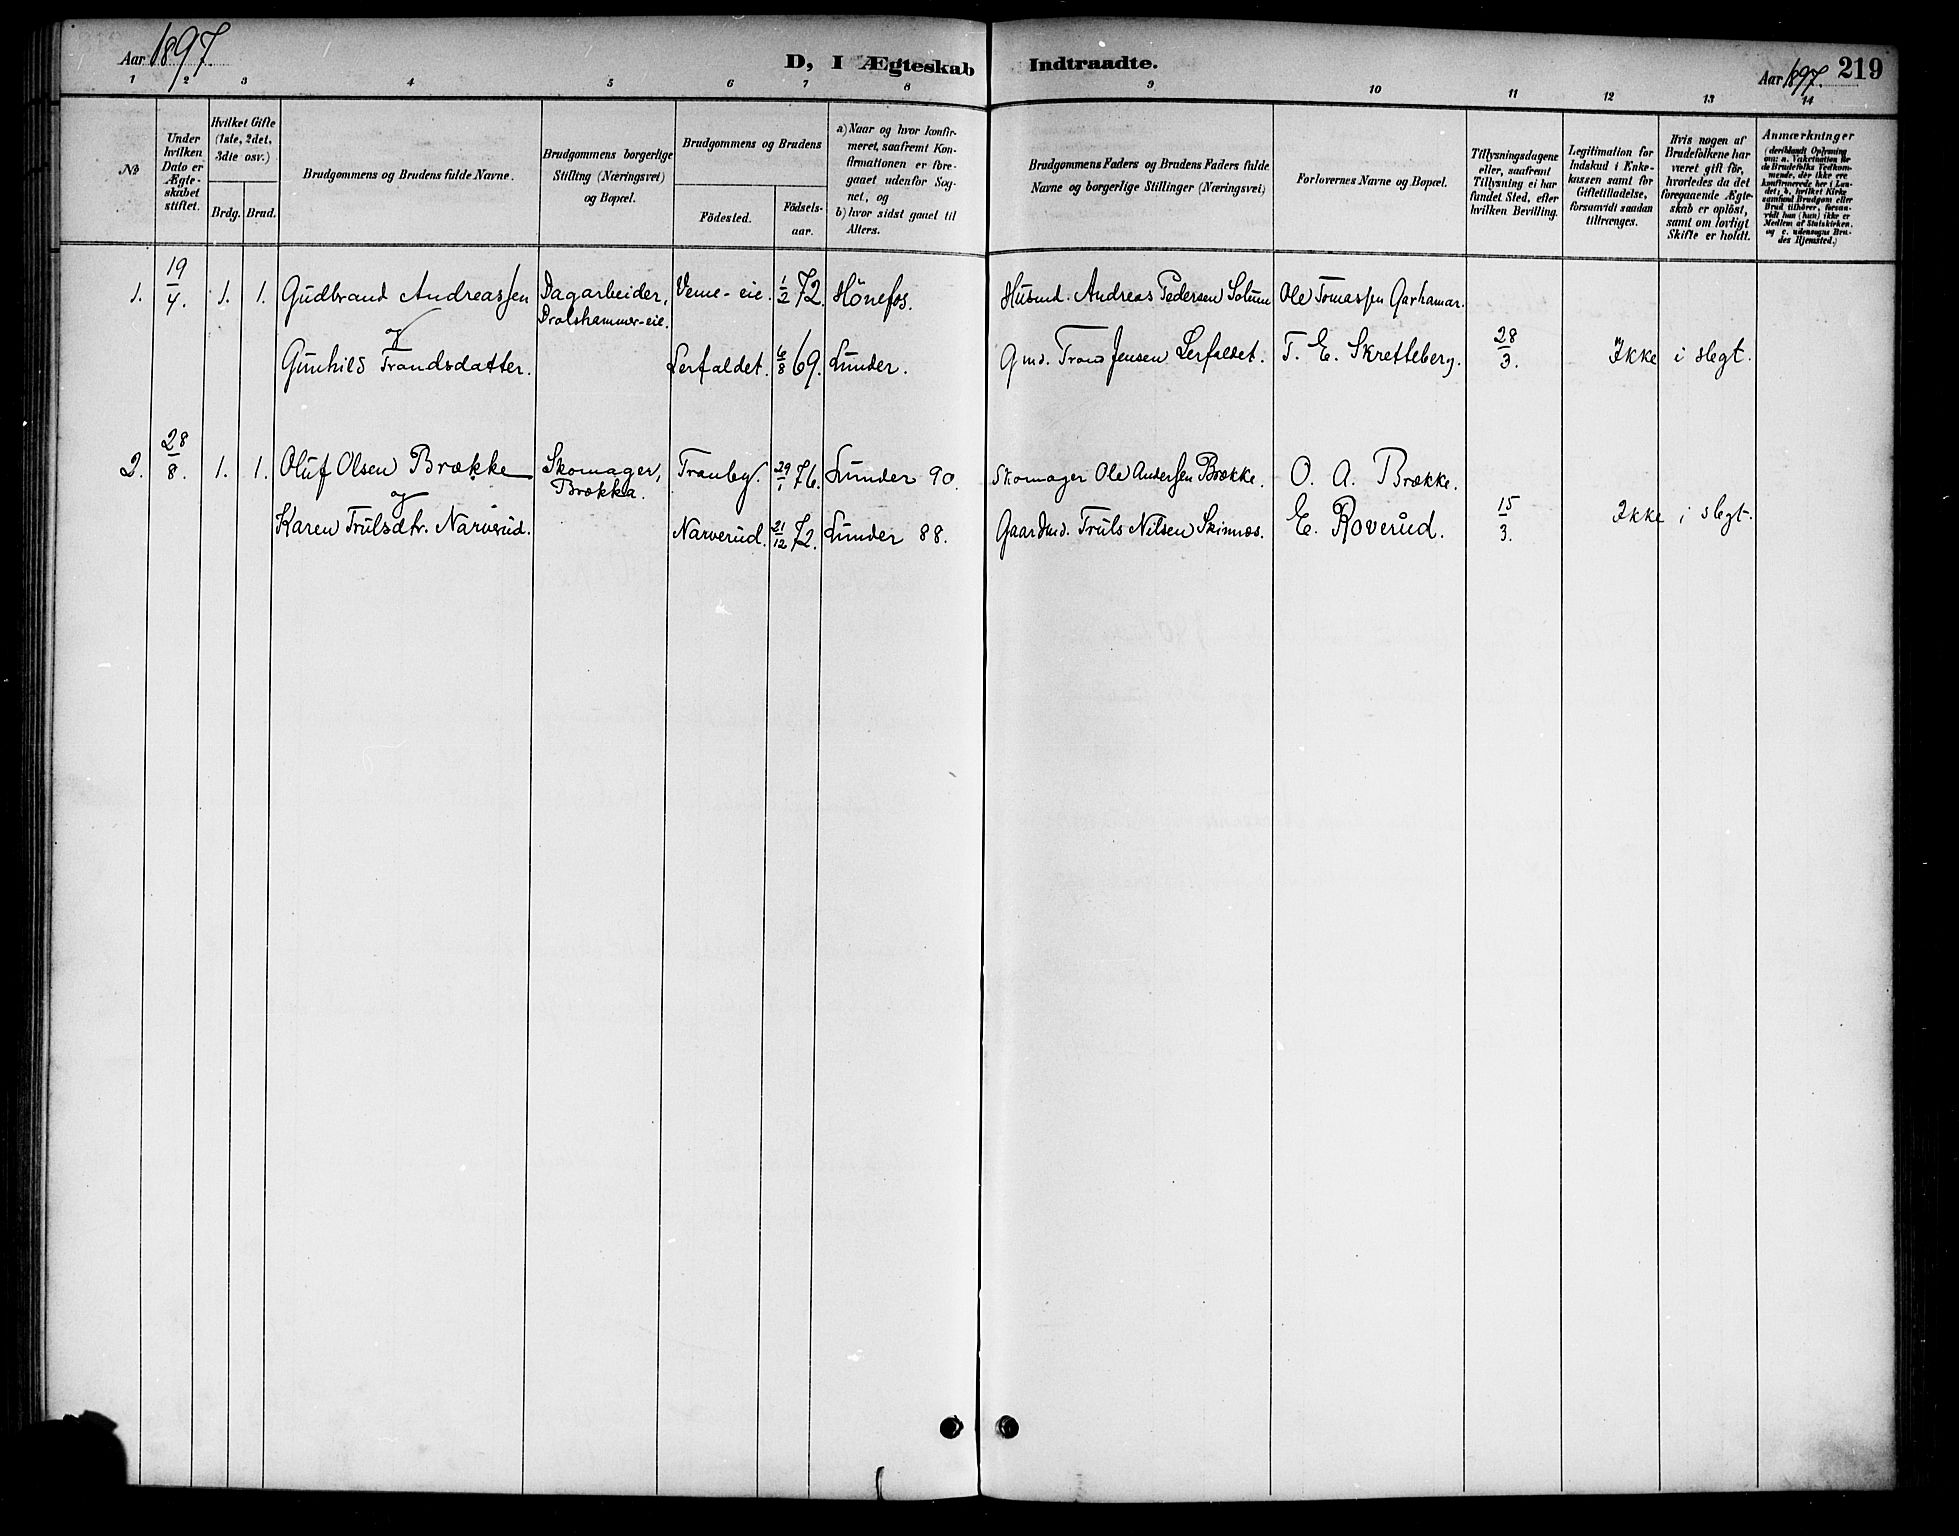 Aar 1897.
D, I Ægteskab Indtraadte.
Aar 1897. 219
1 2 3 4 5 6 7 8 9 10 11 12 13 14
№
Under hvilken Dato er Ægteskabet stiftet.
Hvilket Gifte (1ste, 2det, 3die osv.)
Brdg. Brud.
Brudgommens og Brudens fulde Navne.
Brudgommens borgerlige Stilling (Næringsvei) og Bopæl.
Brudgommens og Brudens
Födested. Födsels-aar.
a) Naar og hvor konfirmeret, saafremt Konfirmationen er foregaaet udenfor Sognet, og
b) hvor sidst gaaet til Alters.
Brudgommens Faders og Brudens Faders fulde Navne og borgerlige Stillinger (Næringsvei)
Forlovernes Navne og Bopæl.
Tillysningsdagene eller, saafremt Tillysning ei har fundet Sted, efter hvilken Bevilling.
Legitimation for Indskud i Enkekassen samt for Giftetilladelse, forsaavidt saadan tiltrænges.
Hvis nogen af Brudefolkene har været gift för, hvorledes da det foregaaende Ægteskab er oplöst, samt om lovligt Skifte er holdt.
Anmærkninger (deriblandt Oplysning om: a. Vakcination for de Brudefolks Vedkommende, der ikke ere konfirmerede her i Landet; b. hvilket Kirkesamfund Brudgom eller Brud tilhörer, forsavidt han (hun) ikke er Medlem af Statskirken, og c. udensogns Brudes Hjemsted.)
1. 19/4. 1. 1. Gudbrand Andreassen Dagarbeider, Veme-eie. 1/2 72. Hönefos. Husmd. Andreas Pedersen Solum Ole Tomassen Garhamar.
og Drolshammer-eie.
Gunhild Trondsdatter. Lerfaldet. 6/8 69. Lunder. Gmd. Trond Jensen Lerfaldet. T. E. Skretteberg. 28/3. Ikke i slegt.
2. 28/8. 1. 1. Oluf Olsen Brække Skomager, Tranby. 29/1 76. Lunder 90. Skomager Ole Andersen Brække. O. A. Brække.
og Brækka.
Karen Trulsdtr. Narverud. Narverud. 21/12 72. Lunder 88. Gaardmd. Truls Nilsen Skinnæs. E. Roverud. 15/3. Ikke i slegt.